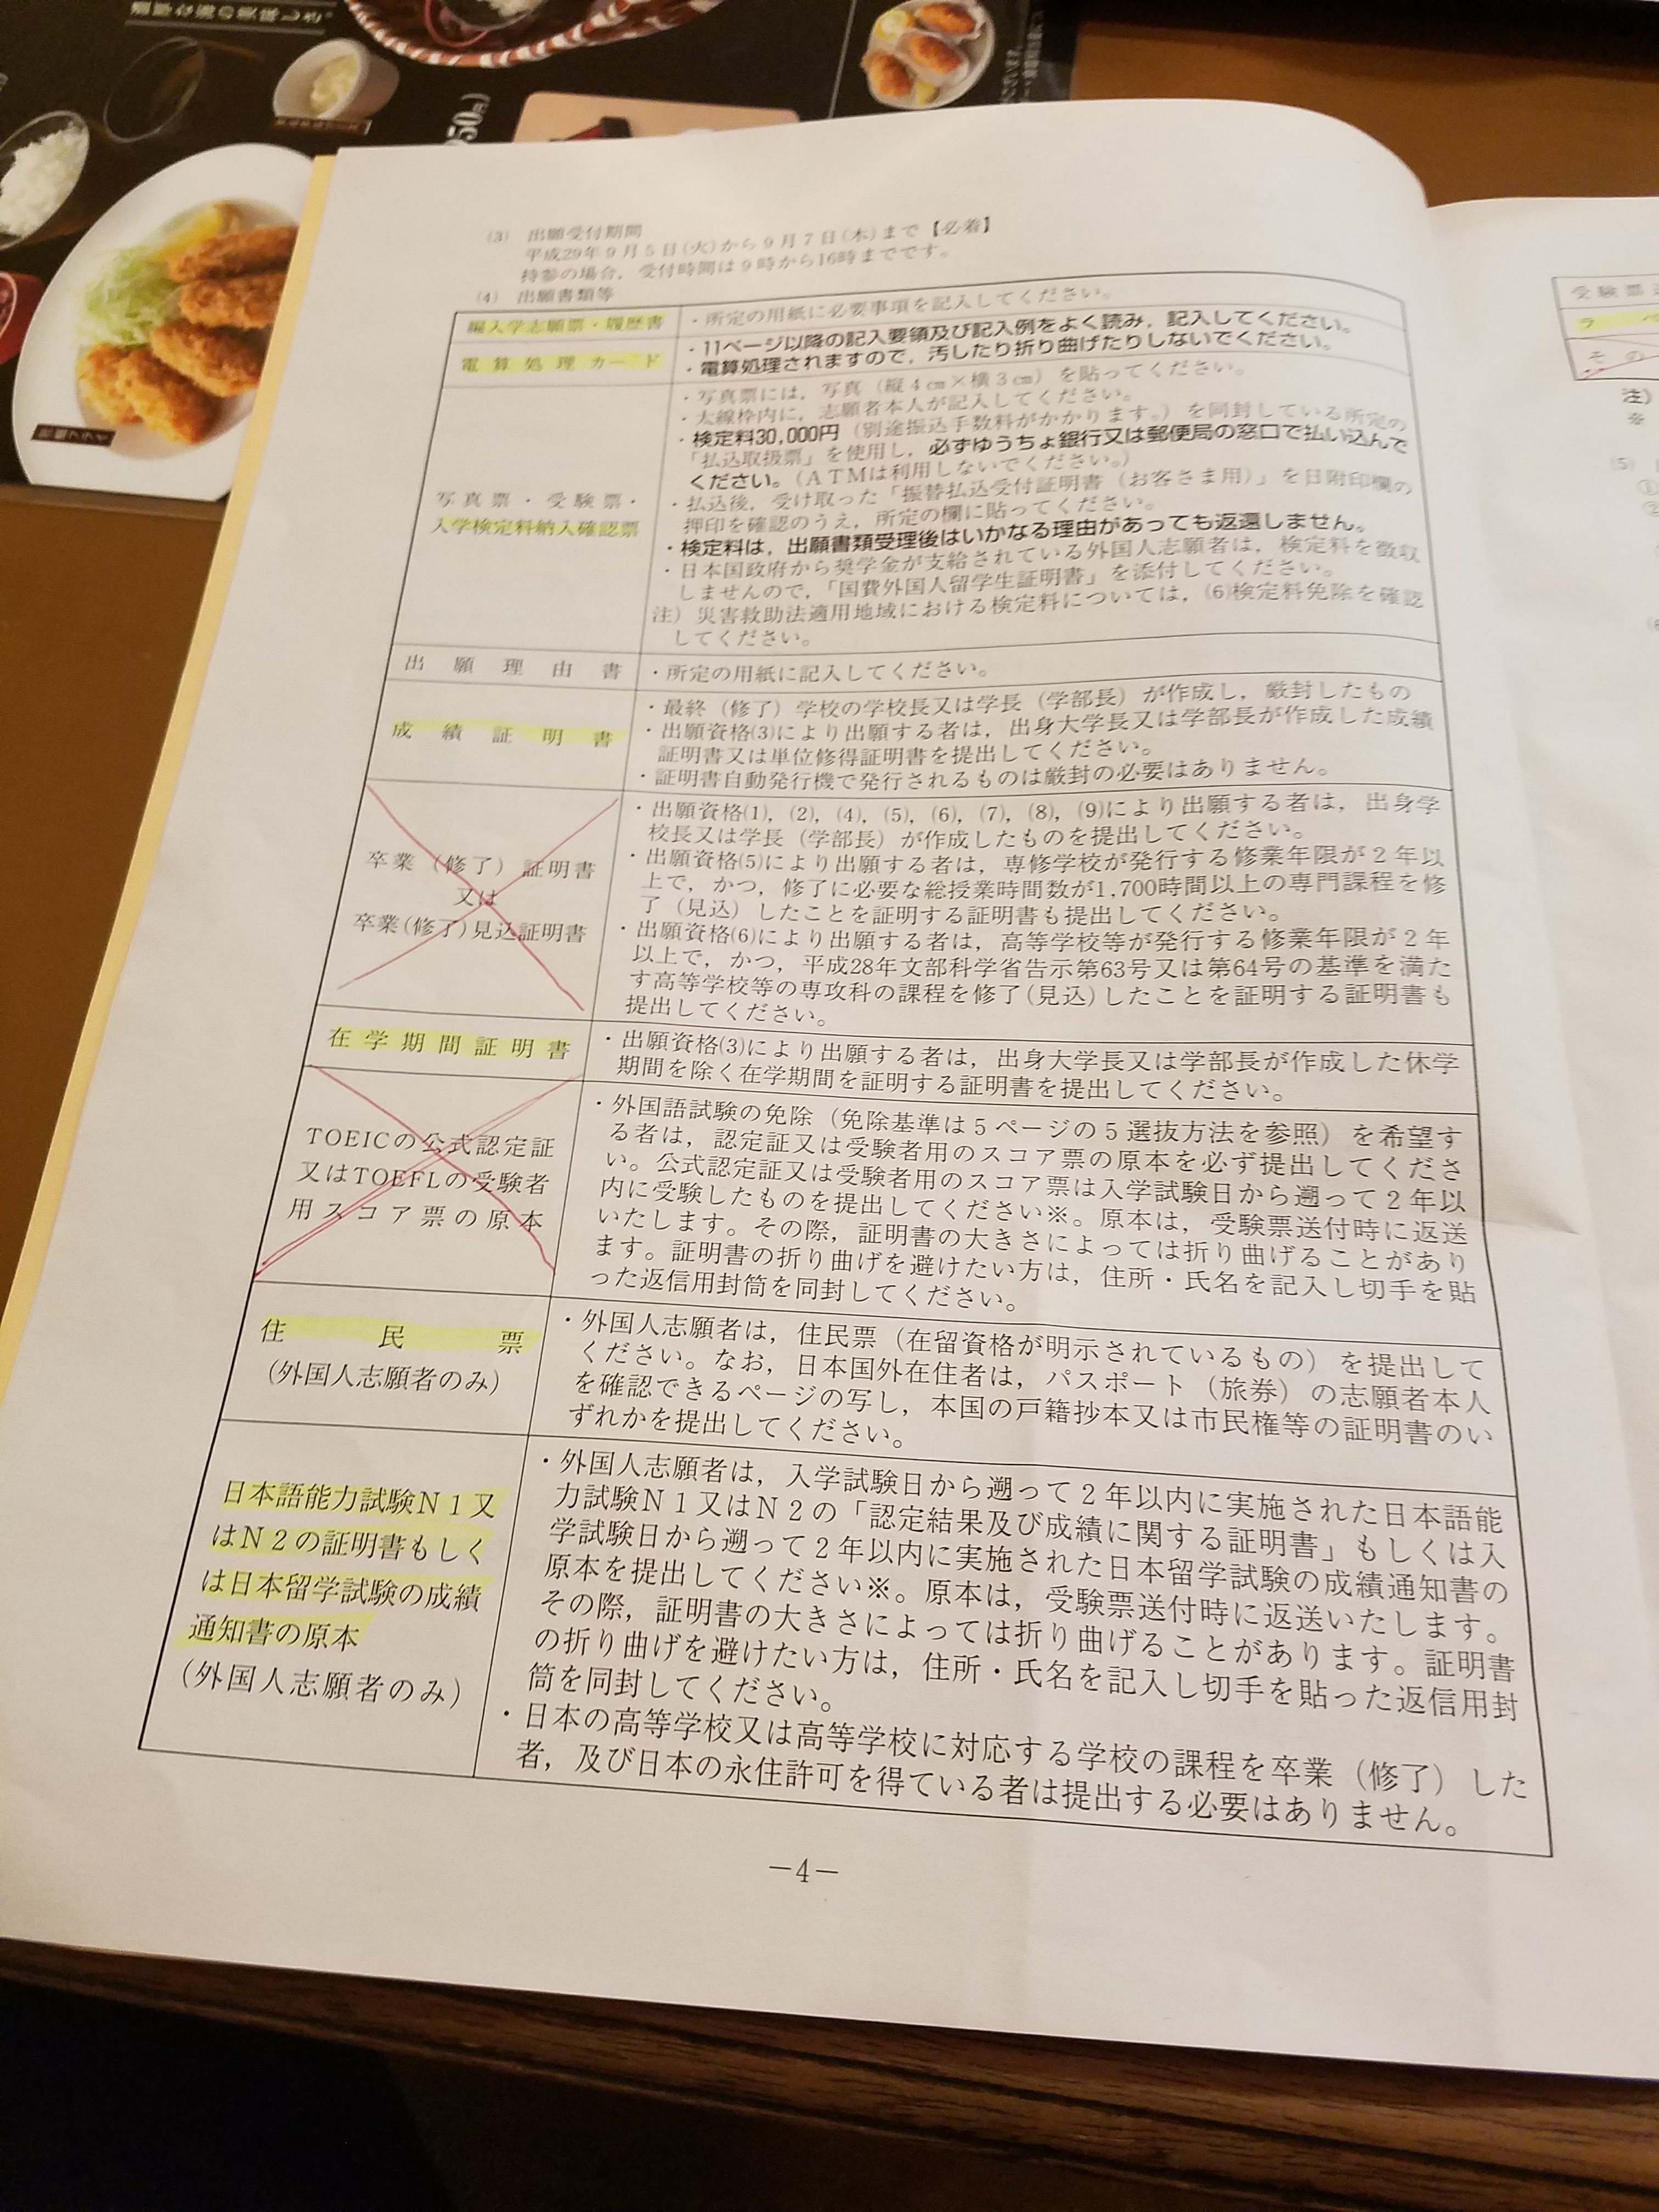 (3) 出願受付期間
平成29年9月5日(火)から9月7日(木)まで【必着】
持参の場合，受付時間は9時から16時までです。
(4) 出願書類等
編入学志願票・履歴書
・所定の用紙に必要事項を記入してください。
電算処理カード
・11ページ以降の記入要領及び記入例をよく読み，記入してください。
・電算処理されますので，汚したり折り曲げたりしないでください。
写真票・受験票・
入学検定料納入確認票
・写真票には，写真（縦4㎝×横3㎝）を貼ってください。
・太線枠内に，志願者本人が記入してください。
・検定料30,000円（別途振込手数料がかかります。）を同封している所定の
「払込取扱票」を使用し，必ずゆうちょ銀行又は郵便局の窓口で払い込んで
ください。（ATMは利用しないでください。）
・払込後，受け取った「振替払込受付証明書（お客さま用）」を日附印欄の
押印を確認のうえ，所定の欄に貼ってください。
・検定料は，出願書類受理後はいかなる理由があっても返還しません。
・日本国政府から奨学金が支給されている外国人志願者は，検定料を徴収
しませんので，「国費外国人留学生証明書」を添付してください。
注）災害救助法適用地域における検定料については，(6)検定料免除を確認
してください。
出願理由書
・所定の用紙に記入してください。
成績証明書
・最終（修了）学校の学校長又は学長（学部長）が作成し，厳封したもの
・出願資格(3)により出願する者は，出身大学長又は学部長が作成した成績
証明書又は単位修得証明書を提出してください。
・証明書自動発行機で発行されるものは厳封の必要はありません。
卒業（修了）証明書
又は
卒業(修了)見込証明書
・出願資格(1)，(2)，(4)，(5)，(6)，(7)，(8)，(9)により出願する者は，出身学
校長又は学長（学部長）が作成したものを提出してください。
・出願資格(5)により出願する者は，専修学校が発行する修業年限が2年以
上で，かつ，修了に必要な総授業時間数が1,700時間以上の専門課程を修
了（見込）したことを証明する証明書も提出してください。
・出願資格(6)により出願する者は，高等学校等が発行する修業年限が2年
以上で，かつ，平成28年文部科学省告示第63号又は第64号の基準を満た
す高等学校等の専攻科の課程を修了(見込)したことを証明する証明書も
提出してください。
在学期間証明書
・出願資格(3)により出願する者は，出身大学長又は学部長が作成した休学
期間を除く在学期間を証明する証明書を提出してください。
TOEICの公式認定証
又はTOEFLの受験者
用スコア票の原本
・外国語試験の免除（免除基準は5ページの5選抜方法を参照）を希望す
る者は，認定証又は受験者用のスコア票の原本を必ず提出してくださ
い。公式認定証又は受験者用のスコア票は入学試験日から遡って2年以
内に受験したものを提出してください※。原本は，受験票送付時に返送
いたします。その際，証明書の大きさによっては折り曲げることがあり
ます。証明書の折り曲げを避けたい方は，住所・氏名を記入し切手を貼
った返信用封筒を同封してください。
住民票
(外国人志願者のみ)
・外国人志願者は，住民票（在留資格が明示されているもの）を提出して
ください。なお，日本国外在住者は，パスポート（旅券）の志願者本人
を確認できるページの写し，本国の戸籍抄本又は市民権等の証明書のい
ずれかを提出してください。
日本語能力試験N1又
はN2の証明書もしく
は日本留学試験の成績
通知書の原本
(外国人志願者のみ)
・外国人志願者は，入学試験日から遡って2年以内に実施された日本語能
力試験N1又はN2の「認定結果及び成績に関する証明書」もしくは入
学試験日から遡って2年以内に実施された日本留学試験の成績通知書の
原本を提出してください※。原本は，受験票送付時に返送いたします。
その際，証明書の大きさによっては折り曲げることがあります。証明書
の折り曲げを避けたい方は，住所・氏名を記入し切手を貼った返信用封
筒を同封してください。
・日本の高等学校又は高等学校に対応する学校の課程を卒業（修了）した
者，及び日本の永住許可を得ている者は提出する必要はありません。
－4－
受験票
ラベ
その
注）
※
(5)
①